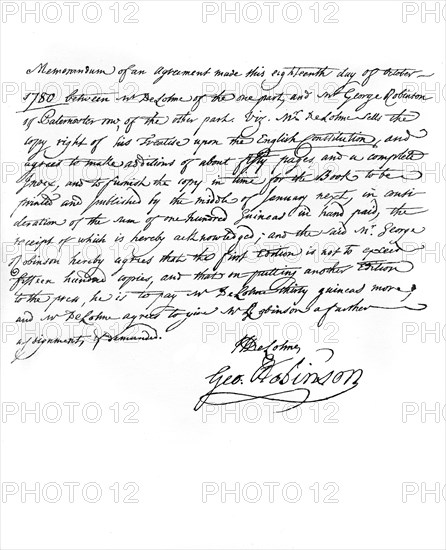 Memorandum of an Agreement made this eighteenth day of October
1780 between Mr DeLolme of the one part, and Mr George Robinson
of Paternoster row, of the other part. Viz. Mr DeLolme sells the
copy right of his Treatise upon the English Constitution, and
agrees to make additions of about fifty pages and a complete
Index, and to furnish the copy in time for the Book to be
printed and published by the middle of January next, in consi
deration of the sum of one hundred Guineas in hand paid, the
receipt of which is hereby acknowledged; and the said Mr. George
Robinson hereby agrees that the first Edition is not to exceed
fifteen hundred copies, and that on putting another Edition
to the press, he is to pay Mr DeLolme thirty guineas more,
and Mr DeLolme agrees to give Mr Robinson a further
assignment if demanded.
DeLolme,
Geo. Robinson
PHOTO12